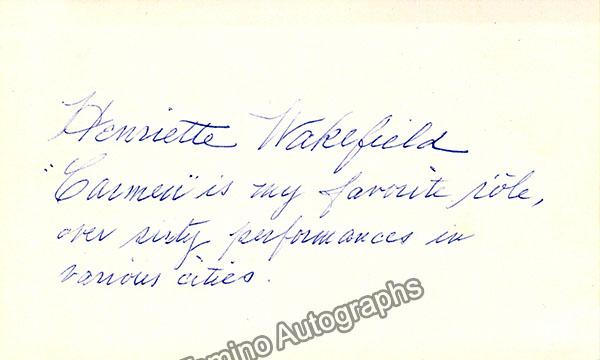 Henriette Wakefield
"Carmen" is my favorite rôle,
over sixty performances in
various cities.
Tamino Autographs